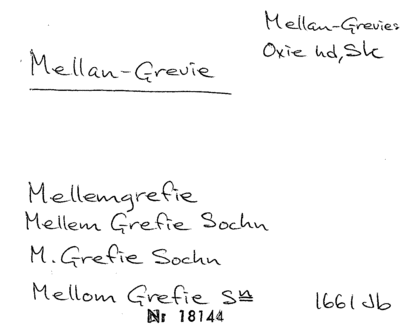 Mellan-Grevies
Oxie hd, Sk
Mellan-Grevie
Mellemgrefie
Mellem Grefie Sochn
M. Grefie Sochn
Mellom Grefie Sn 1661 Jb
Nr 18144